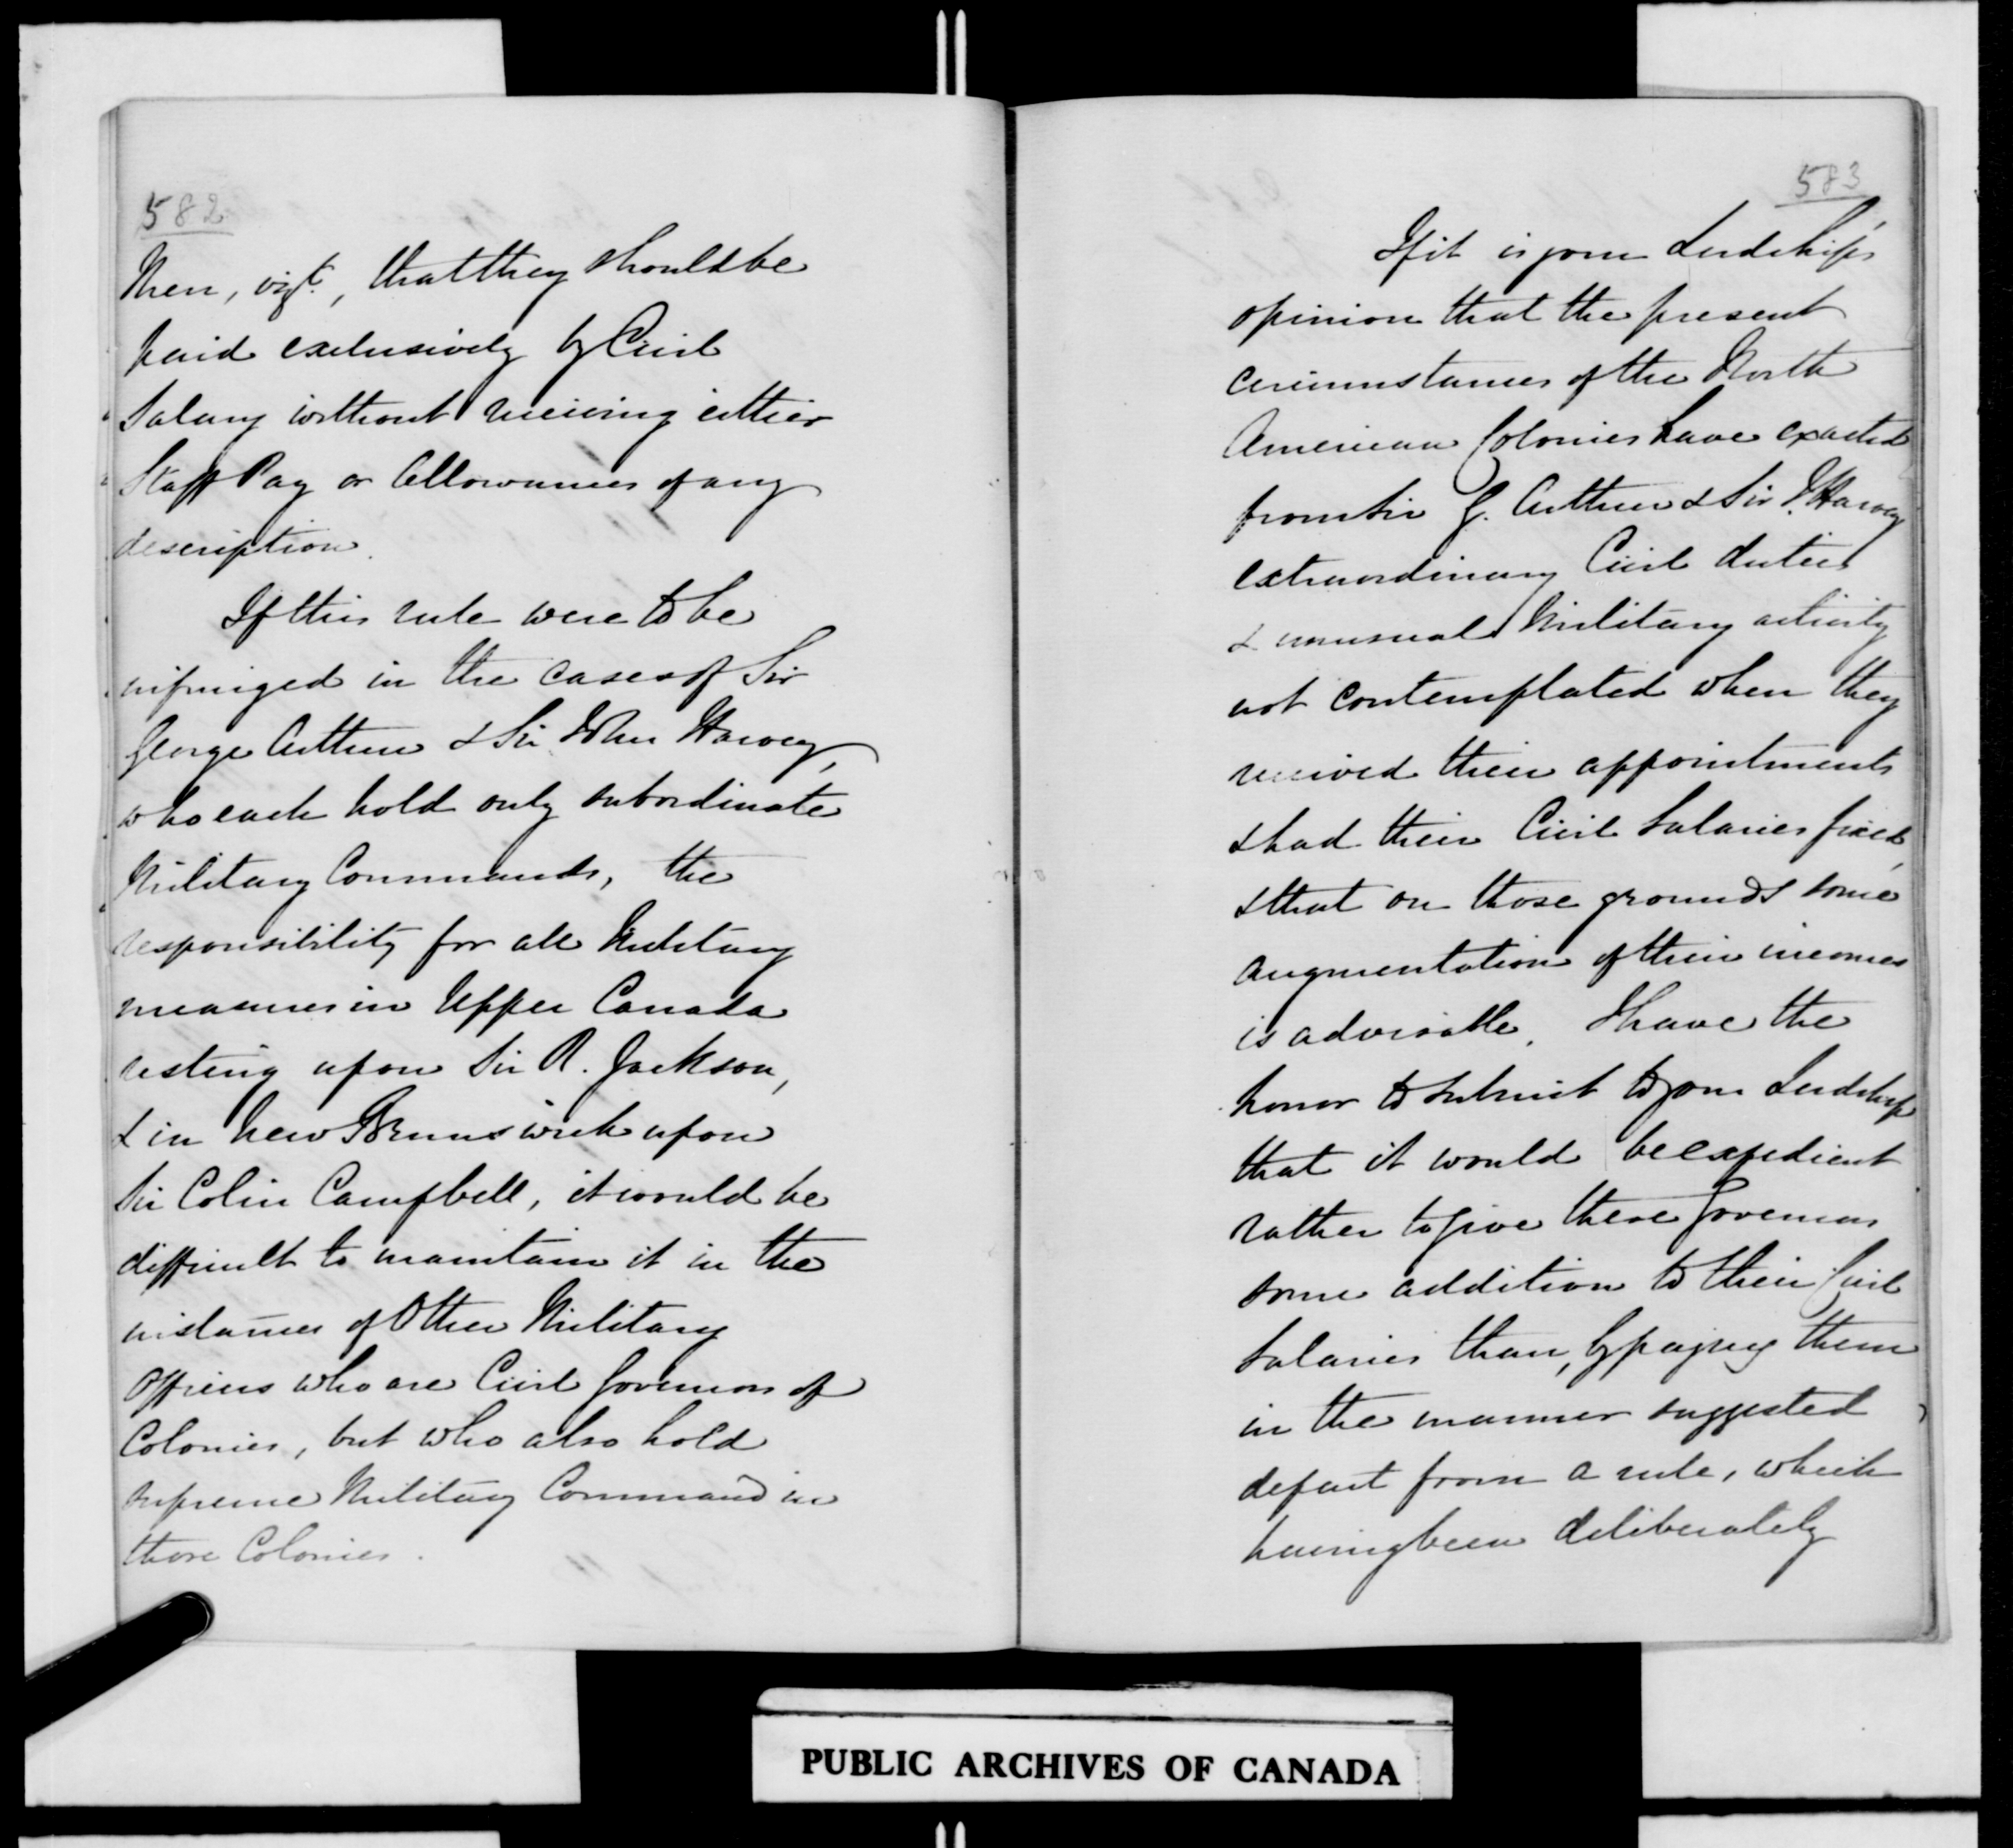 582
them, vizt., that they should be
paid exclusively by Civil
Salary without receiving either
Staff Pay or Allowances of any
description.
If this rule were to be
infringed in the cases of Sir
George Arthur & Sir John Harvey,
who each hold only subordinate
Military Commands, the
responsibility for all Military
measures in Upper Canada
resting upon Sir R. Jackson,
& in New Brunswick upon
Sir Colin Campbell, it would be
difficult to maintain it in the
instances of Other Military
Officers who are Civil Governors of
Colonies, but who also hold
supreme Military Command in
those Colonies.
583
If it is your Lordship's
opinion that the present
circumstances of the North
American Colonies have exacted
from Sir G. Arthur & Sir J. Harvey
extraordinary Civil duties
& unusual Military activity
not contemplated when they
received their appointments
& had their Civil Salaries fixed,
& that on those grounds some
augmentation of their incomes
is advisable, I have the
honor to submit to your Lordship
that it would be expedient
rather to give these Governors
some addition to their Civil
Salaries than, by paying them
in the manner suggested
depart from a rule, which
having been deliberately
PUBLIC ARCHIVES OF CANADA